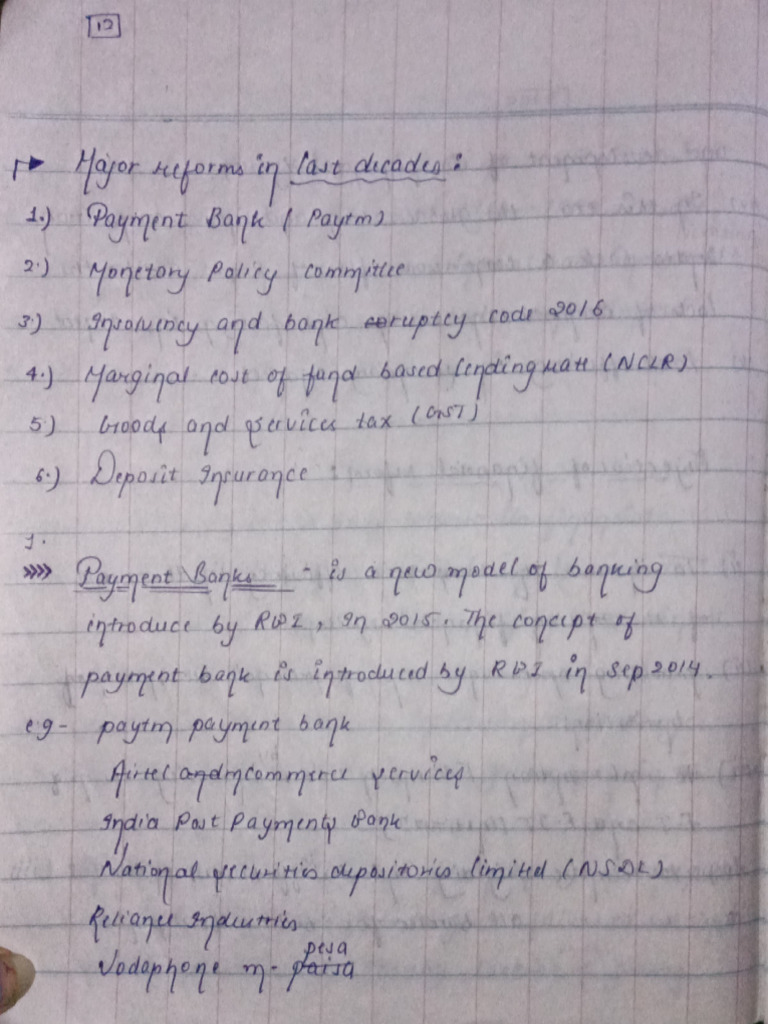 12
Major reforms in last decades :
1.) Payment Bank ( Paytm)
2.) Monetory Policy committee
3.) Insolvency and bank coruptcy code 2016
4.) Marginal cost of fund based lending rate (NCLR)
5.) Goods and services tax (GST)
6.) Deposit Insurance
1.
>>>> Payment Banks - is a new model of banking
introduce by RBI, In 2015. The concept of
payment bank is introduced by RBI in Sep 2014.
e.g- paytm payment bank
Airtel and mcommerce services
India Post Payments Bank
National securities depositories limited (NSDL)
Reliance Industries
pesa
Vodaphone m- paisa